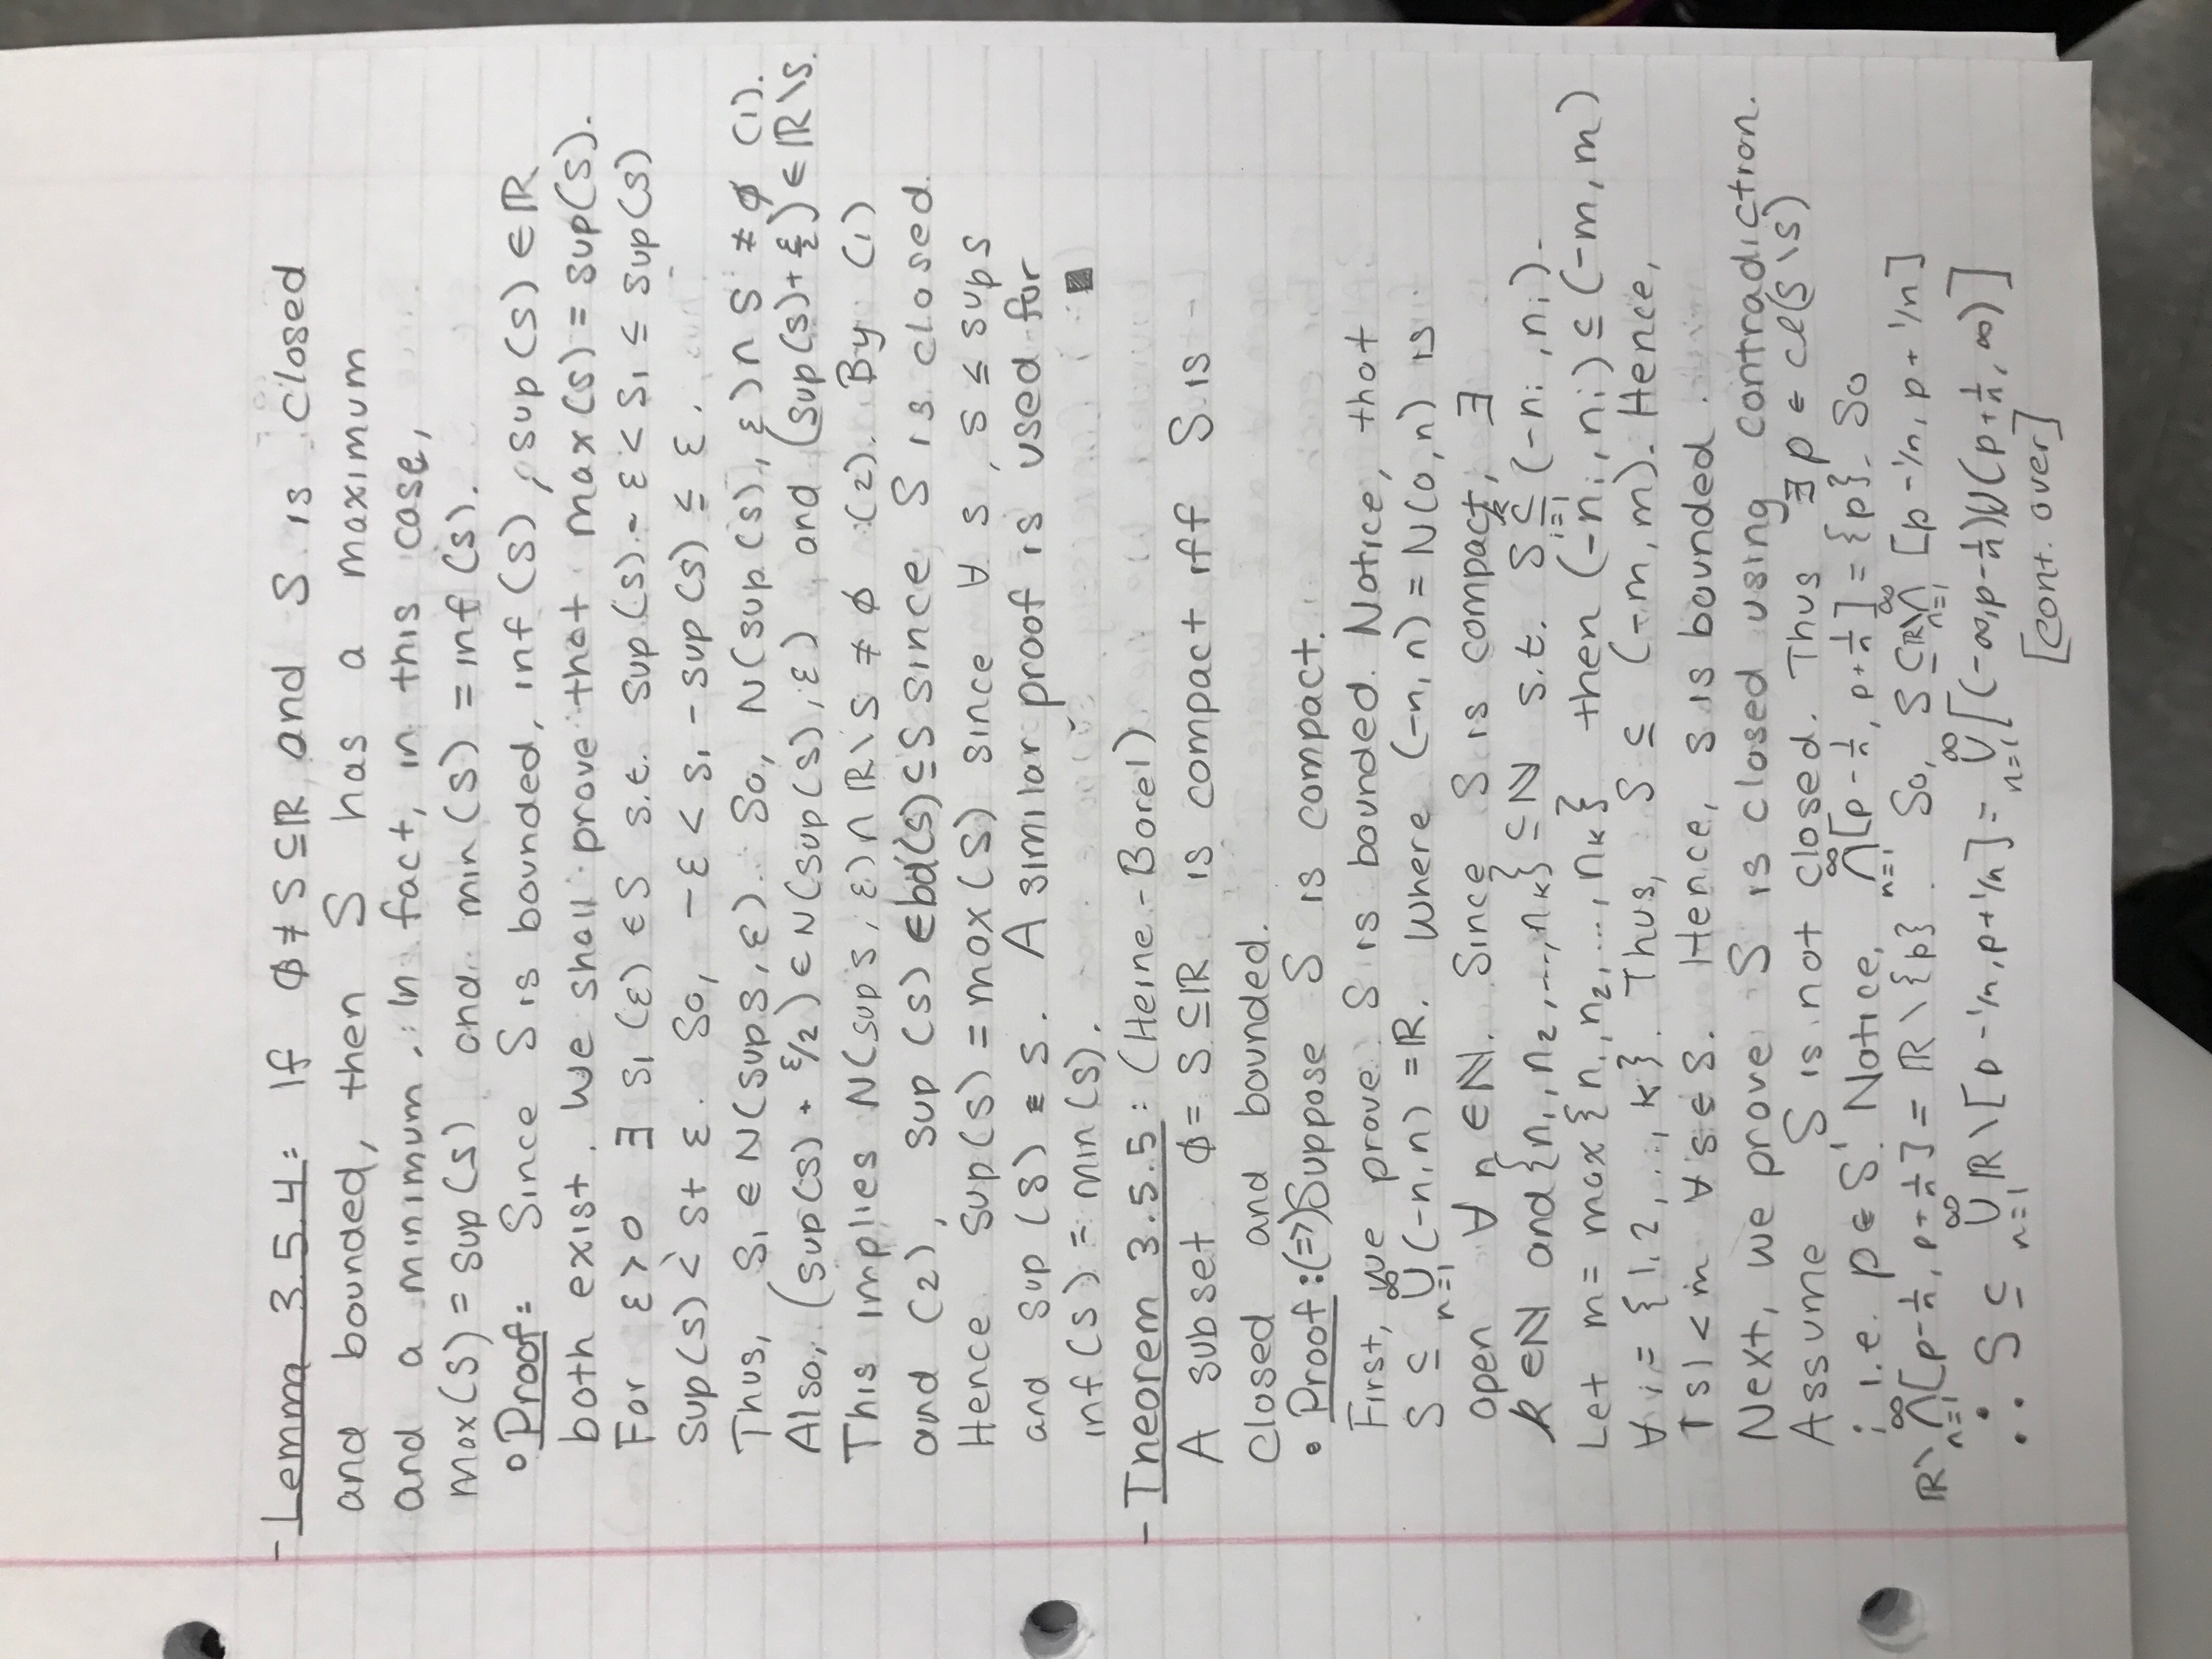 - Lemma 3.5.4: If ∅ ≠ S ⊆ ℝ and S is closed
and bounded, then S has a maximum
and a minimum. In fact, in this case,
max(S) = sup(S) and min(S) = inf(S).
∘ Proof: Since S is bounded, inf(S), sup(S) ∈ ℝ
both exist. We shall prove that max(S) = sup(S).
For ε > 0 ∃ s₁(ε) ∈ S s.t. sup(S) - ε < s₁ ≤ sup(S)
sup(S) < s + ε. So, -ε < s₁ - sup(S) ≤ ε.
Thus, s₁ ∈ N(sup S, ε). So, N(sup(S), ε) ∩ S ≠ ∅ (1).
Also, (sup(S) + ε/2) ∈ N(sup(S), ε), and (sup(S) + ε/2) ∈ ℝ\S.
This implies N(sup S, ε) ∩ ℝ\S ≠ ∅ (2). By (1)
and (2), sup(S) ∈ bd(S) ⊆ S since S is closed.
Hence sup(S) = max(S) since ∀ s, s ≤ sup S
and sup(S) ∈ S. A similar proof is used for
inf(S) = min(S). ■
- Theorem 3.5.5: (Heine-Borel)
A subset ∅ = S ⊆ ℝ is compact iff S is
closed and bounded.
• Proof: (=>) Suppose S is compact.
First, we prove S is bounded. Notice, that
S ⊆ ∪_{n=1}^{∞} (-n, n) = ℝ. Where (-n, n) = N(0, n) is
open ∀ n ∈ ℕ. Since S is compact, ∃
k ∈ ℕ and {n₁, n₂, ..., nₖ} ⊆ ℕ s.t. S ⊆_{i=1}^{k} (-nᵢ, nᵢ).
Let m = max{n₁, n₂, ..., nₖ} then (-nᵢ, nᵢ) ⊆ (-m, m)
∀ i = {1, 2, ..., k}. Thus, S ⊆ (-m, m). Hence,
|s| < m ∀ s ∈ S. Hence, S is bounded.
Next, we prove S is closed using contradiction.
Assume S is not closed. Thus ∃ p ∈ cl(S\S)
; i.e. p ∈ S'. Notice, ∩_{n=1}^{∞} [p - 1/n, p + 1/n] = {p}. So
ℝ\∩_{n=1}^{∞} [p - 1/n, p + 1/n] = ℝ\{p}. So, S ⊆ ℝ\∩_{n=1}^{∞} [p - 1/n, p + 1/n]
∴ S ⊆ ∪_{n=1}^{∞} ℝ\[p - 1/n, p + 1/n] = ∪_{n=1}^{∞} [(-∞, p - 1/n) ∪ (p + 1/n, ∞)]
[cont. over]